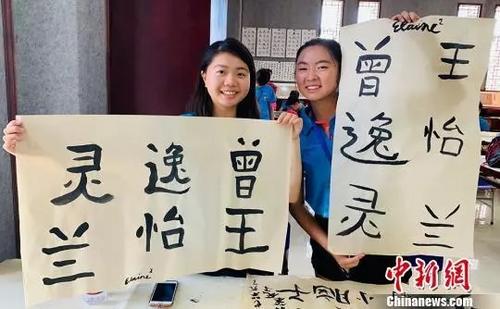 曾逸灵
王怡兰
Elaine²
Elaine²
王怡兰
曾逸灵
中新网
Chinanews.com